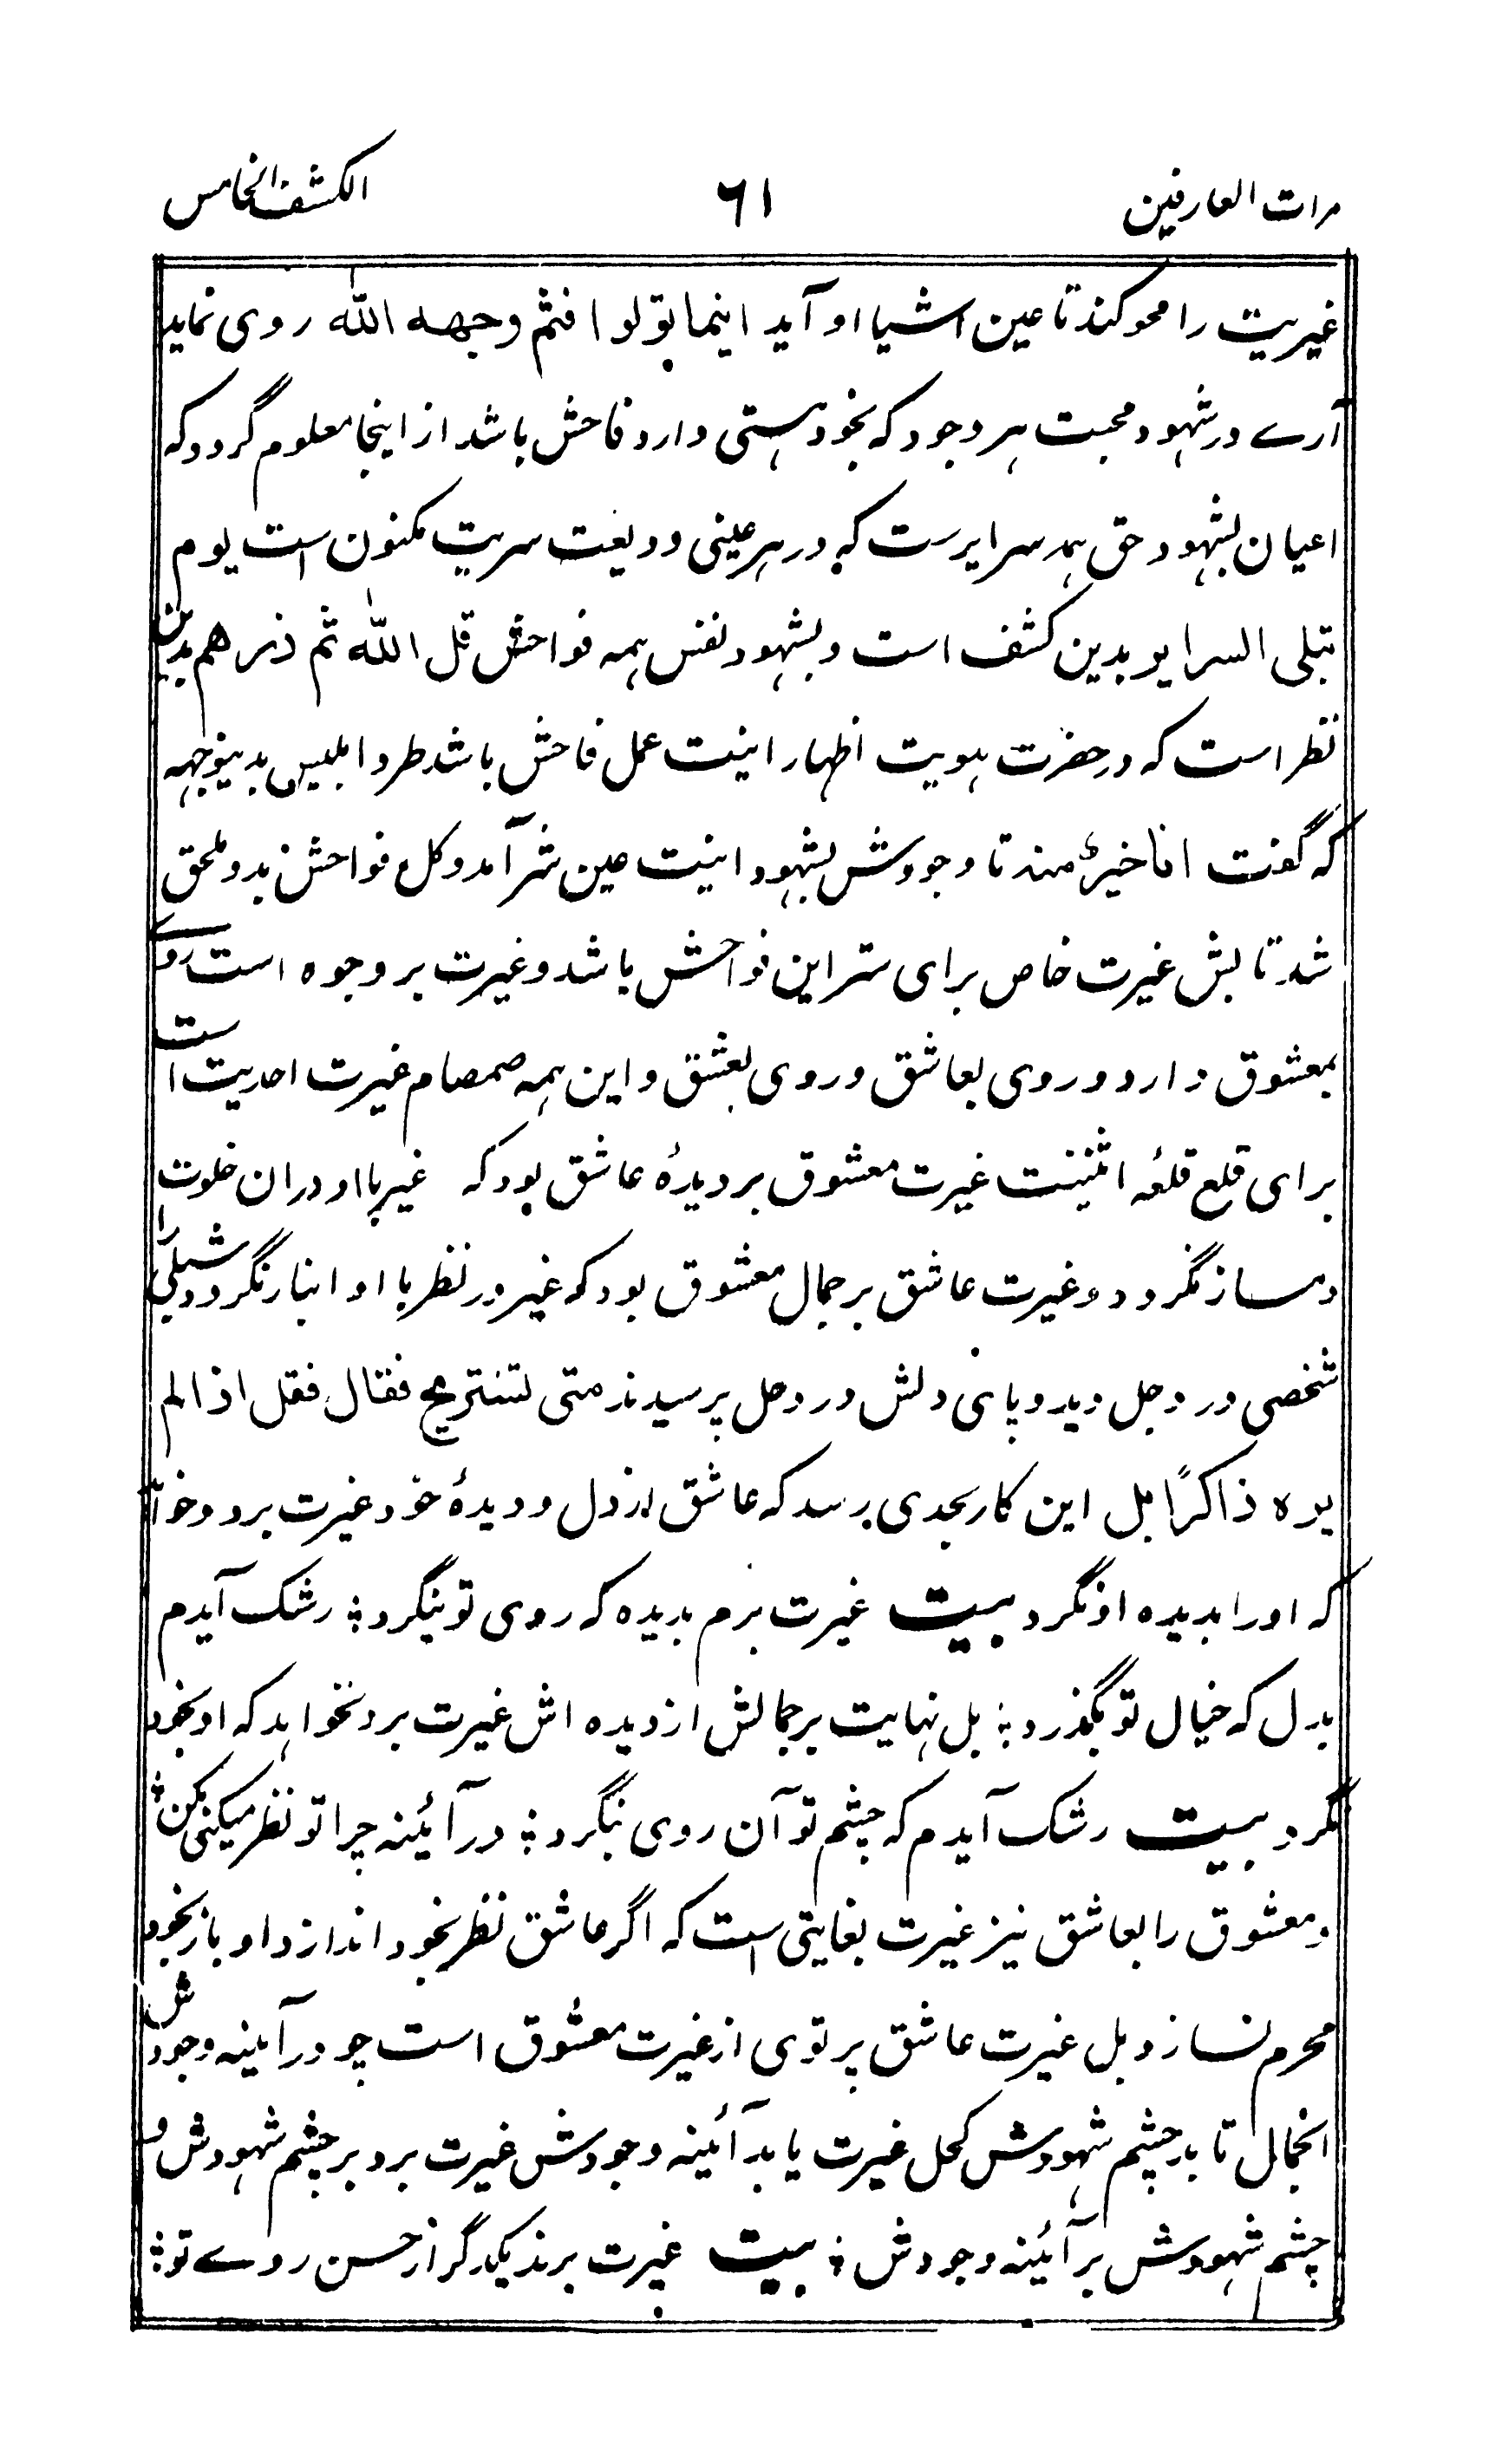 مرات العارفین ٦١ الکشف الخامس
غیریت را محو کند تا عین اشیا او آید اینما تولوا فثم وجهه الله روی نماید
آرے در شهود محبت هر وجود که بخود هستی دارد فاحش باشد از اینجا معلوم گردد که
اعیان بشهود حق همه سرایرست که در هر عینی ودیعت سریت مکنون است یوم
تبلی السرایر بدین کشف است و بشهود نفس همه فواحش قل الله ثم ذرهم بدین
نظر است که در حضرت هویت اظهار انیت عمل فاحش باشد طرد ابلیس بدینوجهه
که گفت انا خیرٌ منه تا وجودش بشهود انیت عین شر آمد و کل فواحش بدو ملحق
شد تا بش غیرت خاص برای ستر این فواحش باشد و غیرت بر وجوه است روے
بمعشوق دارد و روی بعاشق و روی بعشق و این همه صمصام غیرت احدیت است
برای قلع قلعه اثنینت غیرت معشوق بر دیدهٔ عاشق بود که غیر با او دران خلوت
دمساز نگردد و غیرت عاشق بر جمال معشوق بود که غیر در نظر با او انباز نگردد شبلی را
شخصی در وجل دید و پای دلش در وحل پرسیدند متی تستریح فقال فقل اذا لم
یره ذاکرًا بل این کار بحدی رسد که عاشق از دل و دیدهٔ خود غیرت برد و خواهد
که او را بدیده او نگرد بیت غیرت برم بدیده که روی تو بنگرد ؛ رشک آیدم
بدل که خیال تو بگذرد ؛ بل نهایت بر جمالش از دیده اش غیرت برد نخواهد که او بخود
نگرد بیت رشک آیدم که چشم تو آن روی بنگرد ؛ در آئینه چرا تو نظر میکنی مکن ؛
و معشوق را بعاشق نیز غیرت بغایتی است که اگر عاشق نظر بخود اندازد او باز بخود
محرم نسازد بل غیرت عاشق پرتوی از غیرت معشوق است چو در آیینه وجودش
انجمال تا بد چشم شهودش کحل غیرت یابد آئینه وجودش غیرت برد بر چشم شهودش و
چشم شهودش بر آئینه وجودش ؛ بیت غیرت برند یکدگر از حسن روے تو ؛